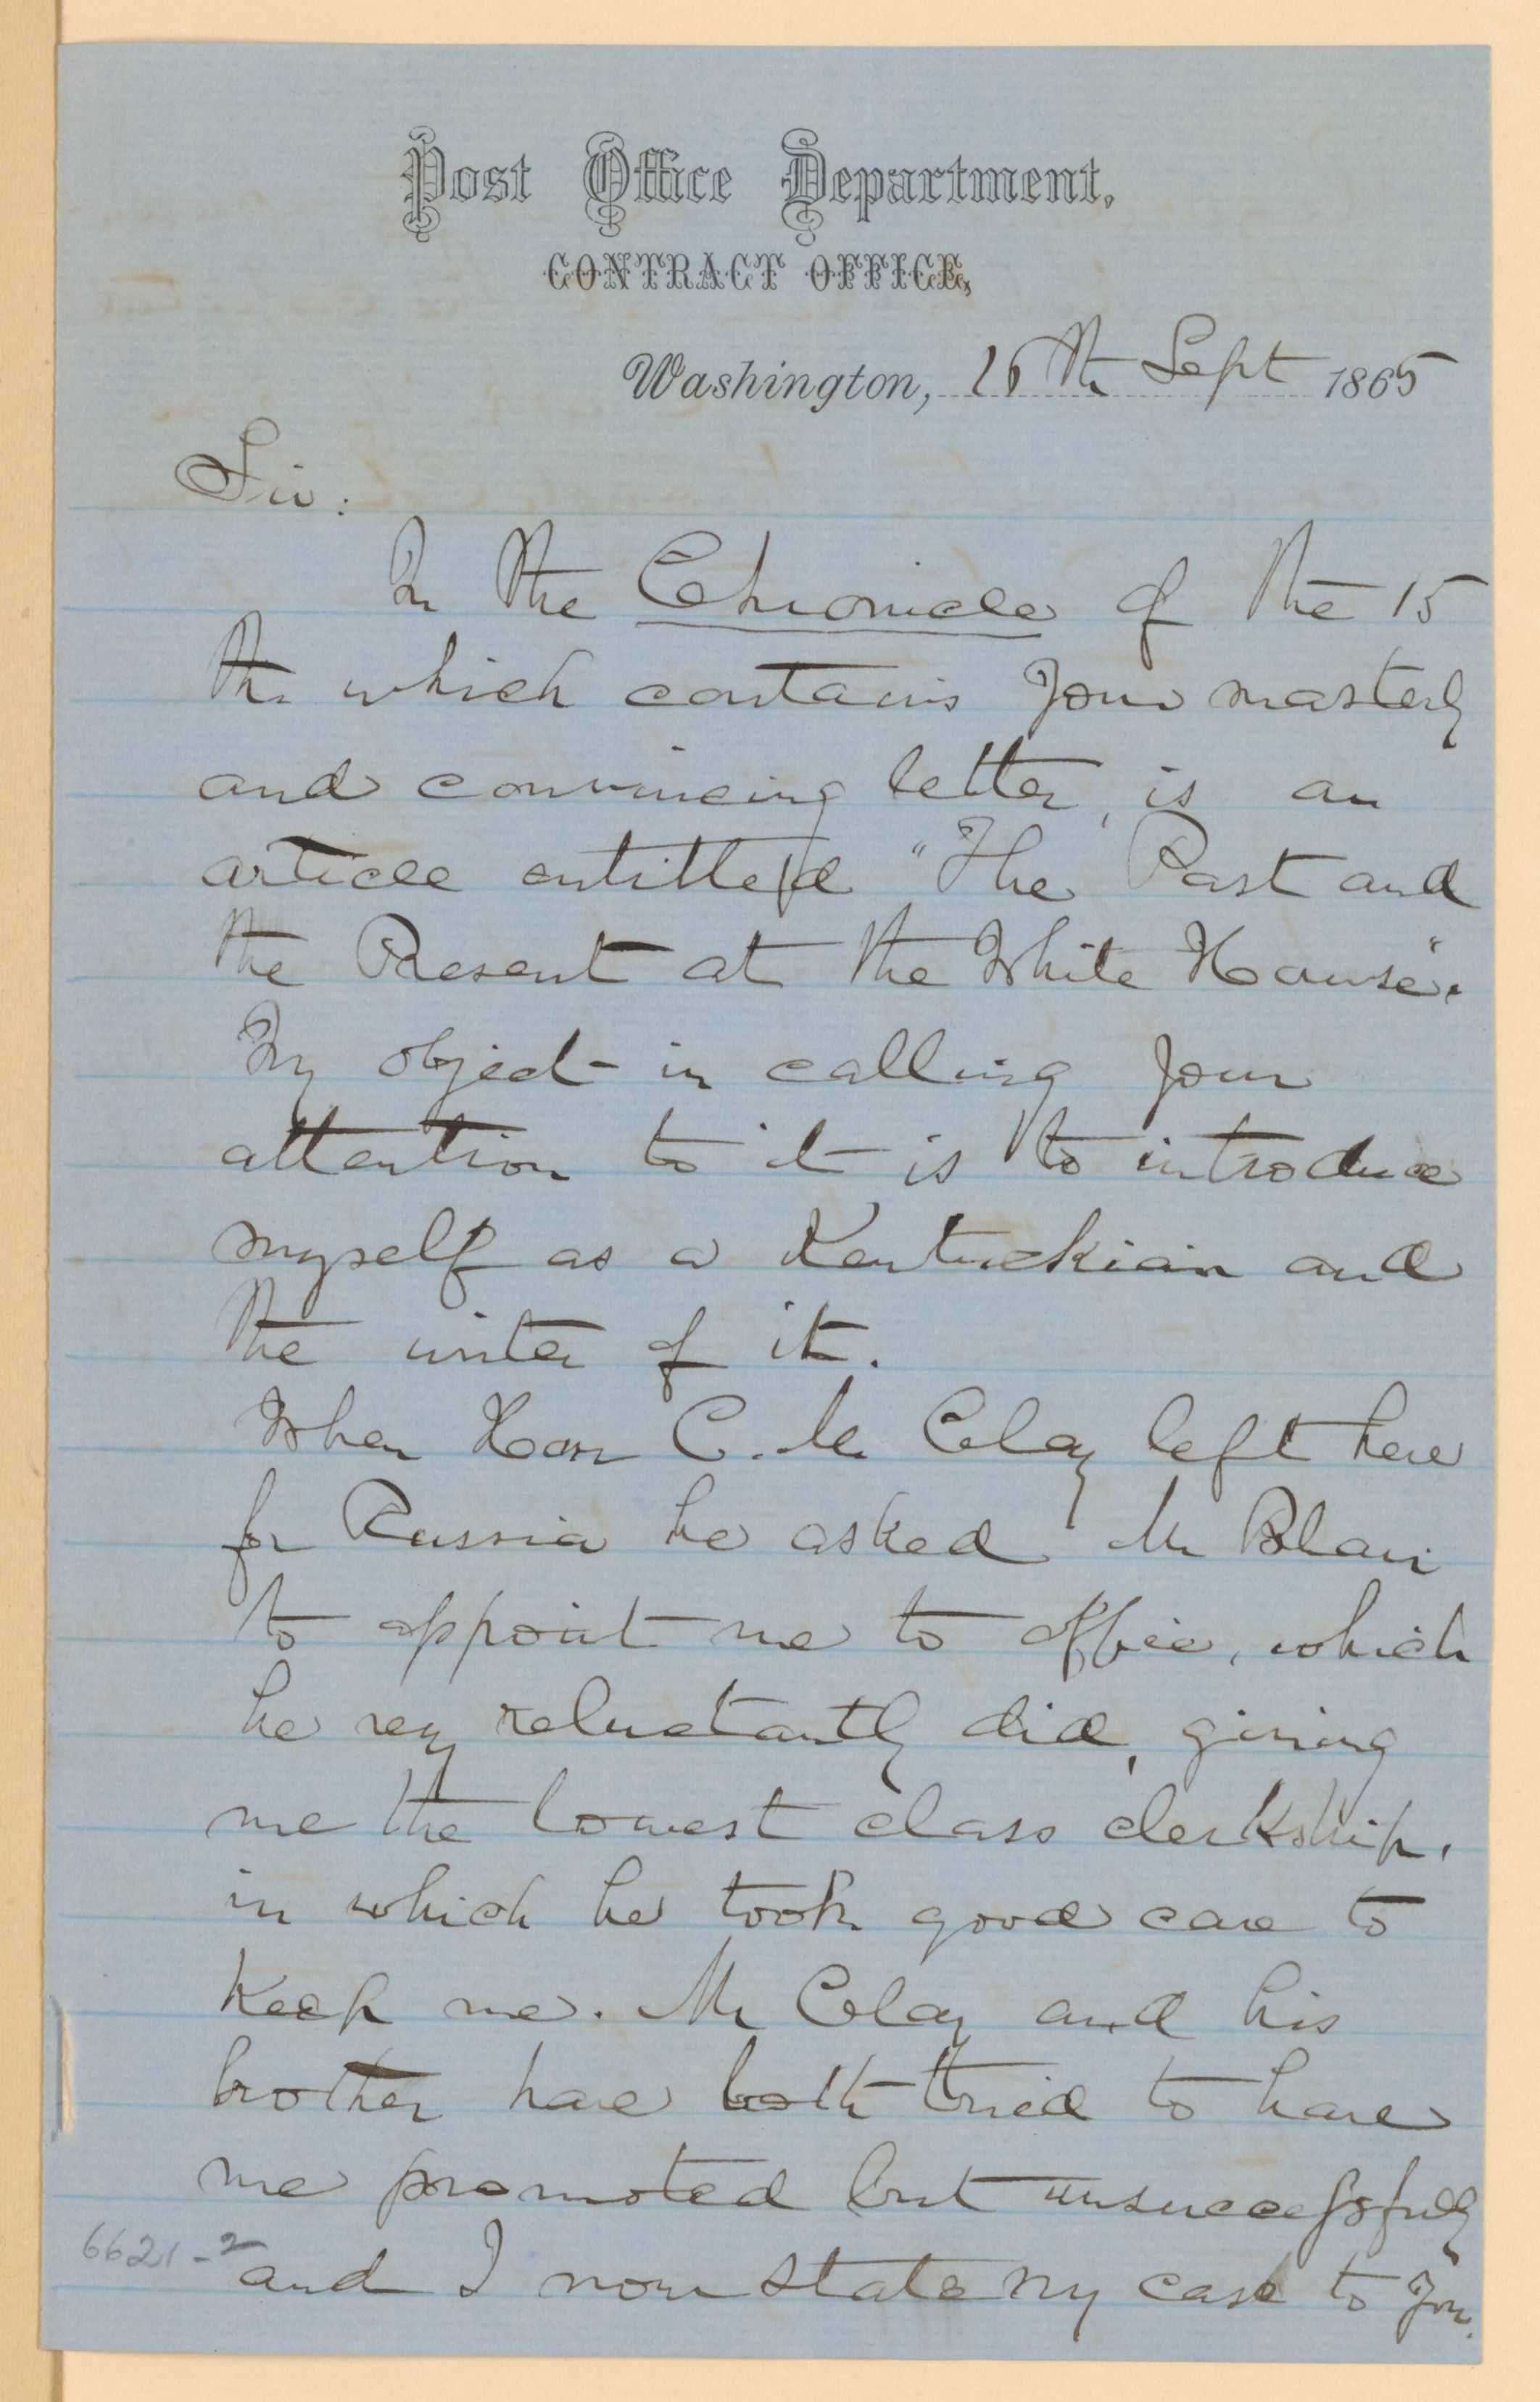 Post Office Department,
CONTRACT OFFICE,
Washington, 16th Sept 1865
Sir:
In the Chronicle of the 15
th which contains your masterly
and convincing letter, is an
article entitled "The Past and
the Present at the White House".
My object in calling your
attention to it is to introduce
myself as a Kentuckian and
the writer of it.
When Hon C. M. Clay left here
for Russia he asked Mr Blair
to appoint me to office, which
he very reluctantly did, giving
me the lowest class clerkship,
in which he took good care to
keep me. Mr Clay and his
brother have both tried to have
me promoted but unsuccessfully
and I now state my case to you.
6621-2